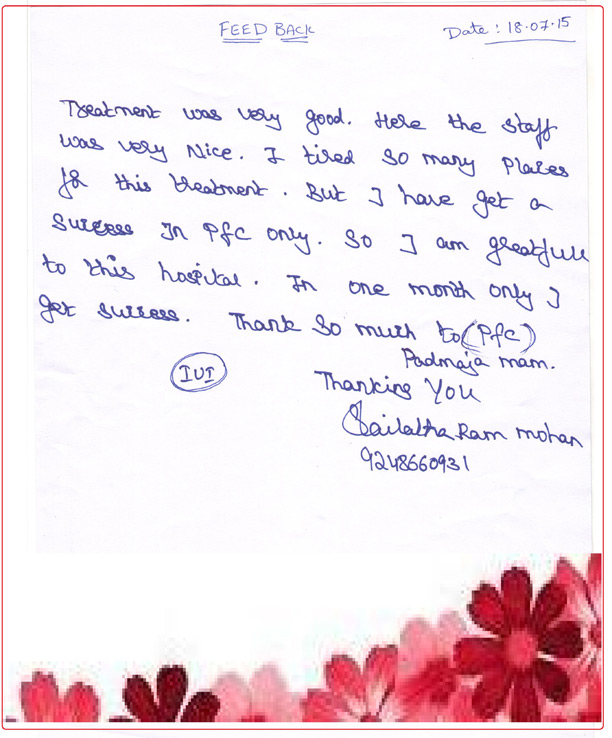 FEED BACK
Date : 18.07.15
Treatment was very good. Here the staff
was very Nice. I tired so many places
for this treatment. But I have get a
success In Pfc only. So I am greatfull
to this hospital. In one month only I
get success. Thank So much to (Pfc)
Padmaja mam.
IUI
Thanking You
Sailatha Ram mohan
9248660931